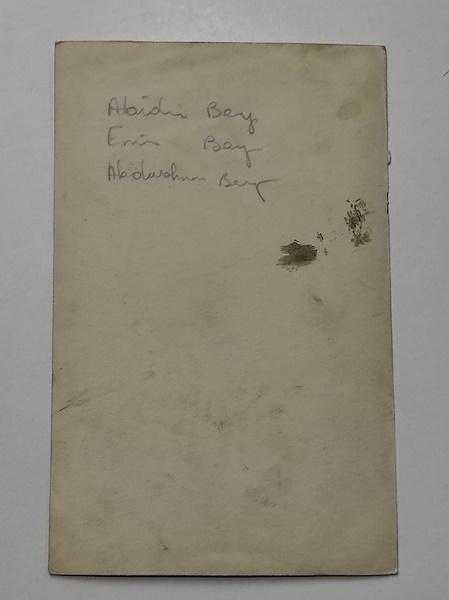 Abidin Bey
Emin Bey
Abdurahman Bey